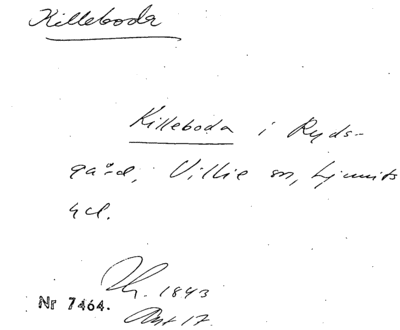 Killeboda
Killeboda i Ryds-
gård, Villie sn, Ljunits
hd.
1843
Nr 7464.